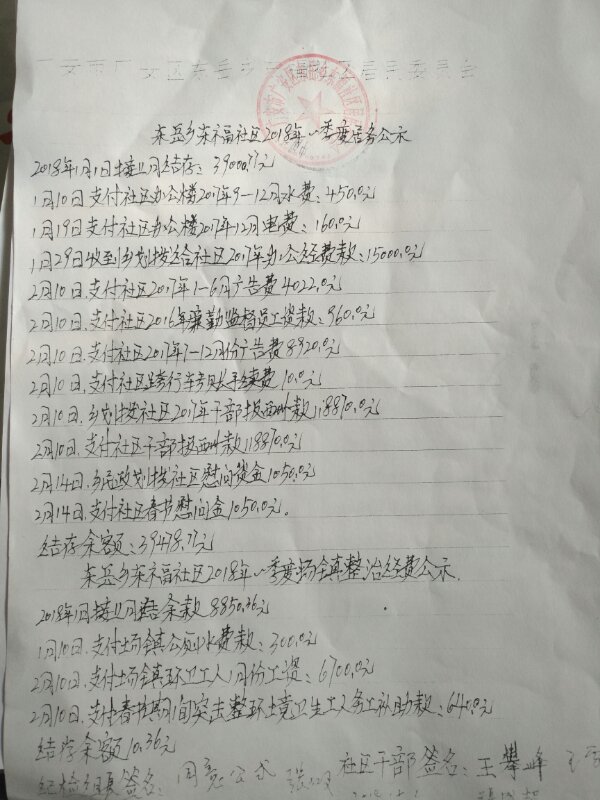 广安市广安区东岳乡 居民委员会
东岳乡东福社区2018年一季度居务公示
2018年1月1日接上月结存：39000.77元
1月10日支付社区办公楼2017年9-12月水费：450.0元
1月19日支付社区办公楼2017年12月电费：160.0元
1月29日收到乡划拨送给社区2017年办公经费款：15000.0元
2月10日支付社区2017年1-6月广告费4022.0元
2月10日.支付社区2016年 勤监督员工资款：960.0元
2月10日.支付社区2017年7-12月份广告费8920.0元
2月10日.支付社区跨行转账手续费10.0元
2月10日.乡划拨社区2017年干部报酬款118870.0元
2月10日.支付社区干部报酬款118870.0元
2月14日.乡民政划拨社区慰问资金1050.0元
2月14日.支付社区春节慰问金1050.0元。
结存余额：39478.77元
东岳乡东福社区2018年一季度场镇整治经费公示.
2018年1月接上月结余款8850.36元
1月10日.支付场镇公厕水费款：300.0元
2月10日.支付场镇环卫工人1月份工资：6700.0元
2月10日.支付春节期间突击整环境卫生工人务工补助款：640.0元
结存余额10.36元
签名： 社区干部签名：王攀峰